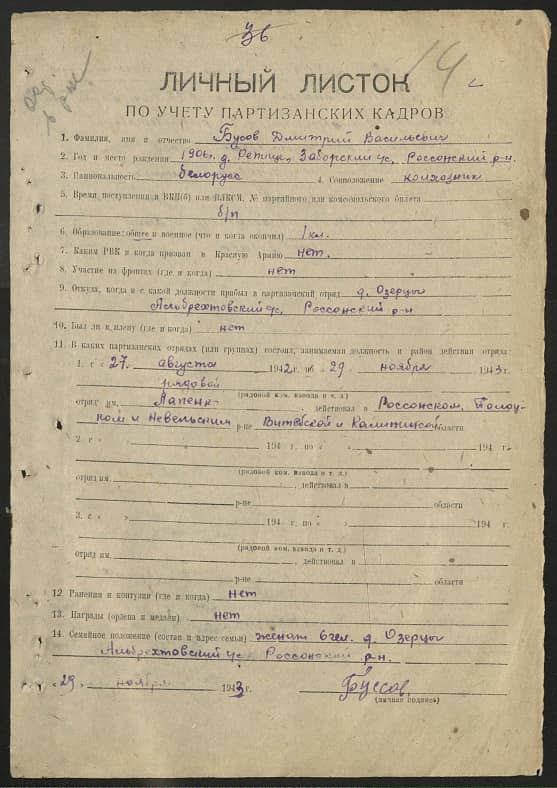 36
14
ЛИЧНЫЙ ЛИСТОК
ПО УЧЕТУ ПАРТИЗАНСКИХ КАДРОВ
1. Фамилия, имя и отчество Бусов Дмитрий Васильевич
2. Год и место рождения 1906 г. д. Репище, Заборский с/с, Россонский р-н.
3. Национальность белорус 4. Соцположение колхозник
5. Время поступления в ВКП(б) или ВЛКСМ, № партийного или комсомольского билета
б/п
6. Образование: общее и военное (что и когда окончил) 1 кл.
7. Каким РВК и когда призван в Красную Армию нет.
8. Участие на фронтах (где и когда) нет
9. Откуда, когда и с какой должности прибыл в партизанский отряд д. Озерцы
Альбрехтовский с/с, Россонский р-н
10. Был ли в плену (где и когда) нет
11. В каких партизанских отрядах (или группах) состоял, занимаемая должность и район действия отряда:
1. с «27. августа 1942 г. по 29 ноября 1943 г.
рядовой
(рядовой ком. взвода и т. д.)
отряд им. Лапенк- , действовал в Россонском, Полоц-
ком и Невельским р-не Витебской и Калининской области
2. с « » 194 г. по « » 194 г.
(рядовой ком. взвода и т. д.)
отряд им. , действовал в
р-не области
3. с « » 194 г. по « » 194 г.
(рядовой ком. взвода и т. д.)
отряд им. , действовал в
р-не области
12. Ранения и контузии (где и когда) нет
13. Награды (ордена и медали) нет
14. Семейное положение (состав и адрес семьи) женат 6 чел. д. Озерцы
Альбрехтовский с/с Россонский р-н.
« 29. ноября 1943 г. Бусов
(личная подпись)